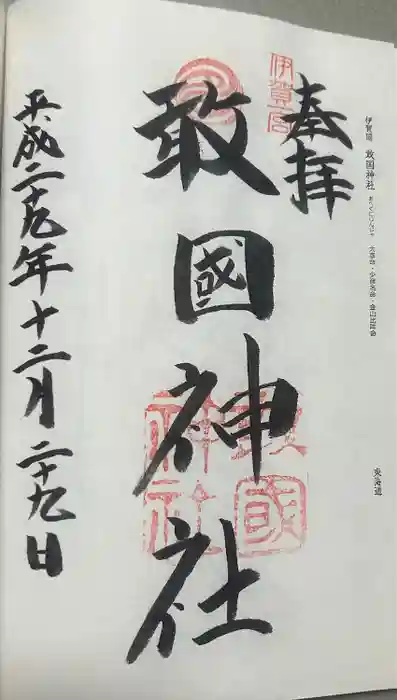 伊賀国 敢国神社 あえくにじんじゃ 大彦命・少彦名命・金山比咩命
東海道
奉拝
伊賀一宮
敢國神社
敢國神社
平成二十九年十二月二十九日